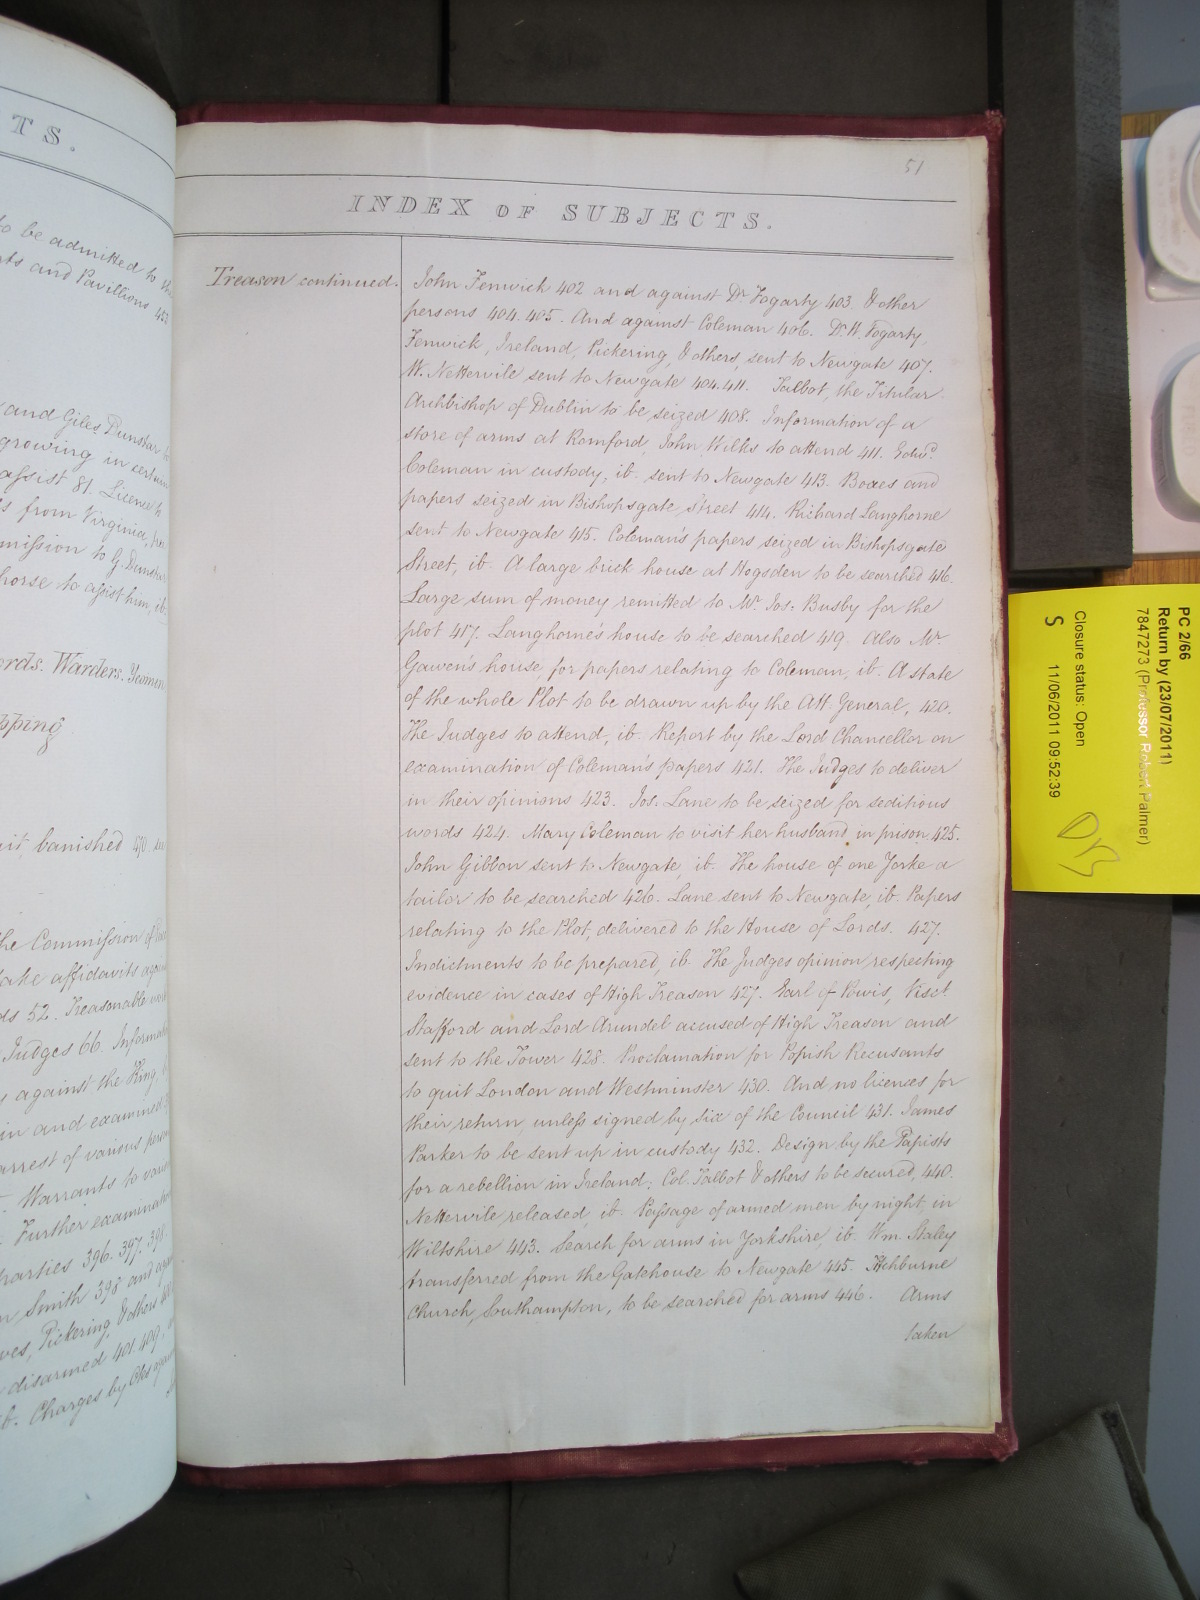 TS.
to be admitted to the
and Pavillions
and Giles Dunstar
growing in certain
assist 81. Licence to
from Virginia,
mission to G. Dunstar
horse to assist him, ib.
Warders. Yeomen
banished 470
the Commission of
take affidavits
52. Treasonable
Judges 66.
against the King,
in and examined
arrest of various
Warrants to
Further
parties 396. 397. 398.
Smith 398 and
Pickering, & others
disarmed 401. 409.
ib. Charges by
51
INDEX OF SUBJECTS.
Treason continued.
John Fenwick 402 and against Dr. Fogarty 403. & other
persons 404. 405. And against Coleman 406. Dr. W. Fogarty,
Fenwick, Ireland, Pickering, & others, sent to Newgate 407.
W. Nettervile sent to Newgate 404. 411. Talbot, the Titular
Archbishop of Dublin to be seized 408. Information of a
store of arms at Romford, John Wilks to attend 411. Edwd.
Coleman in custody, ib. sent to Newgate 413. Boxes and
papers seized in Bishopsgate Street 414. Richard Langhorne
sent to Newgate 415. Coleman's papers seized in Bishopsgate
Street, ib. A large brick house at Hogsden to be searched 416.
Large sum of money remitted to Mr. Jos: Busby for the
plot 417. Langhorne's house to be searched 419. Also Mr.
Gawen's house, for papers relating to Coleman, ib. A state
of the whole Plot to be drawn up by the Att. General, 420.
The Judges to attend, ib. Report by the Lord Chancellor on
examination of Coleman's papers 421. The Judges to deliver
in their opinions 423. Jos. Lane to be seized for seditious
words 424. Mary Coleman to visit her husband in prison, 425.
John Gibbon sent to Newgate, ib. The house of one Yorke a
tailor to be searched 426. Lane sent to Newgate, ib. Papers
relating to the Plot, delivered to the House of Lords. 427.
Indictments to be prepared, ib. The Judges opinion respecting
evidence in cases of High Treason 427. Earl of Powis, Visct.
Stafford and Lord Arundel accused of High Treason and
sent to the Tower 428. Proclamation for Popish Recusants
to quit London and Westminster 430. And no licenses for
their return, unless signed by six of the Council 431. James
Parker to be sent up in custody 432. Design by the Papists
for a rebellion in Ireland; Col. Talbot & others to be secured, 440.
Nettervile released, ib. Passage of armed men by night, in
Wiltshire 443. Search for arms in Yorkshire, ib. Wm. Staley
transferred from the Gatehouse to Newgate 445. Titchburne
Church, Southampton, to be searched for arms 446. Arms
taken
PC 2/66
Return by (23/07/2011)
7847273 (Professor Robert Palmer)
Closure status: Open
S 11/06/2011 09:52:39